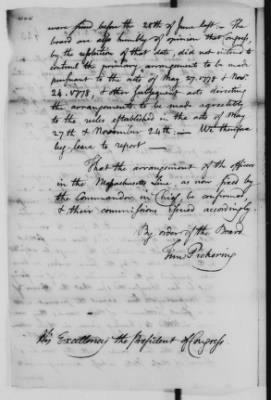 were fixed before the 28th of June last. — The
board are also humbly of opinion that congress,
by the resolution of that date, did not intend to
controul the primary arrangement to be made
pursuant to the acts of May 27. 1778 & Nov.
24. 1778, & other subsequent acts directing
the arrangements to be made agreeably
to the rules established in the acts of May
27th & November 24th: — We therefore
beg leave to report —
That the arrangement of the officers
in the Massachusetts Line as now fixed by
the Commander in Chief, be confirmed
& their commissions issued accordingly.
By order of the Board
Tim. Pickering
His Excellency the President of Congress.